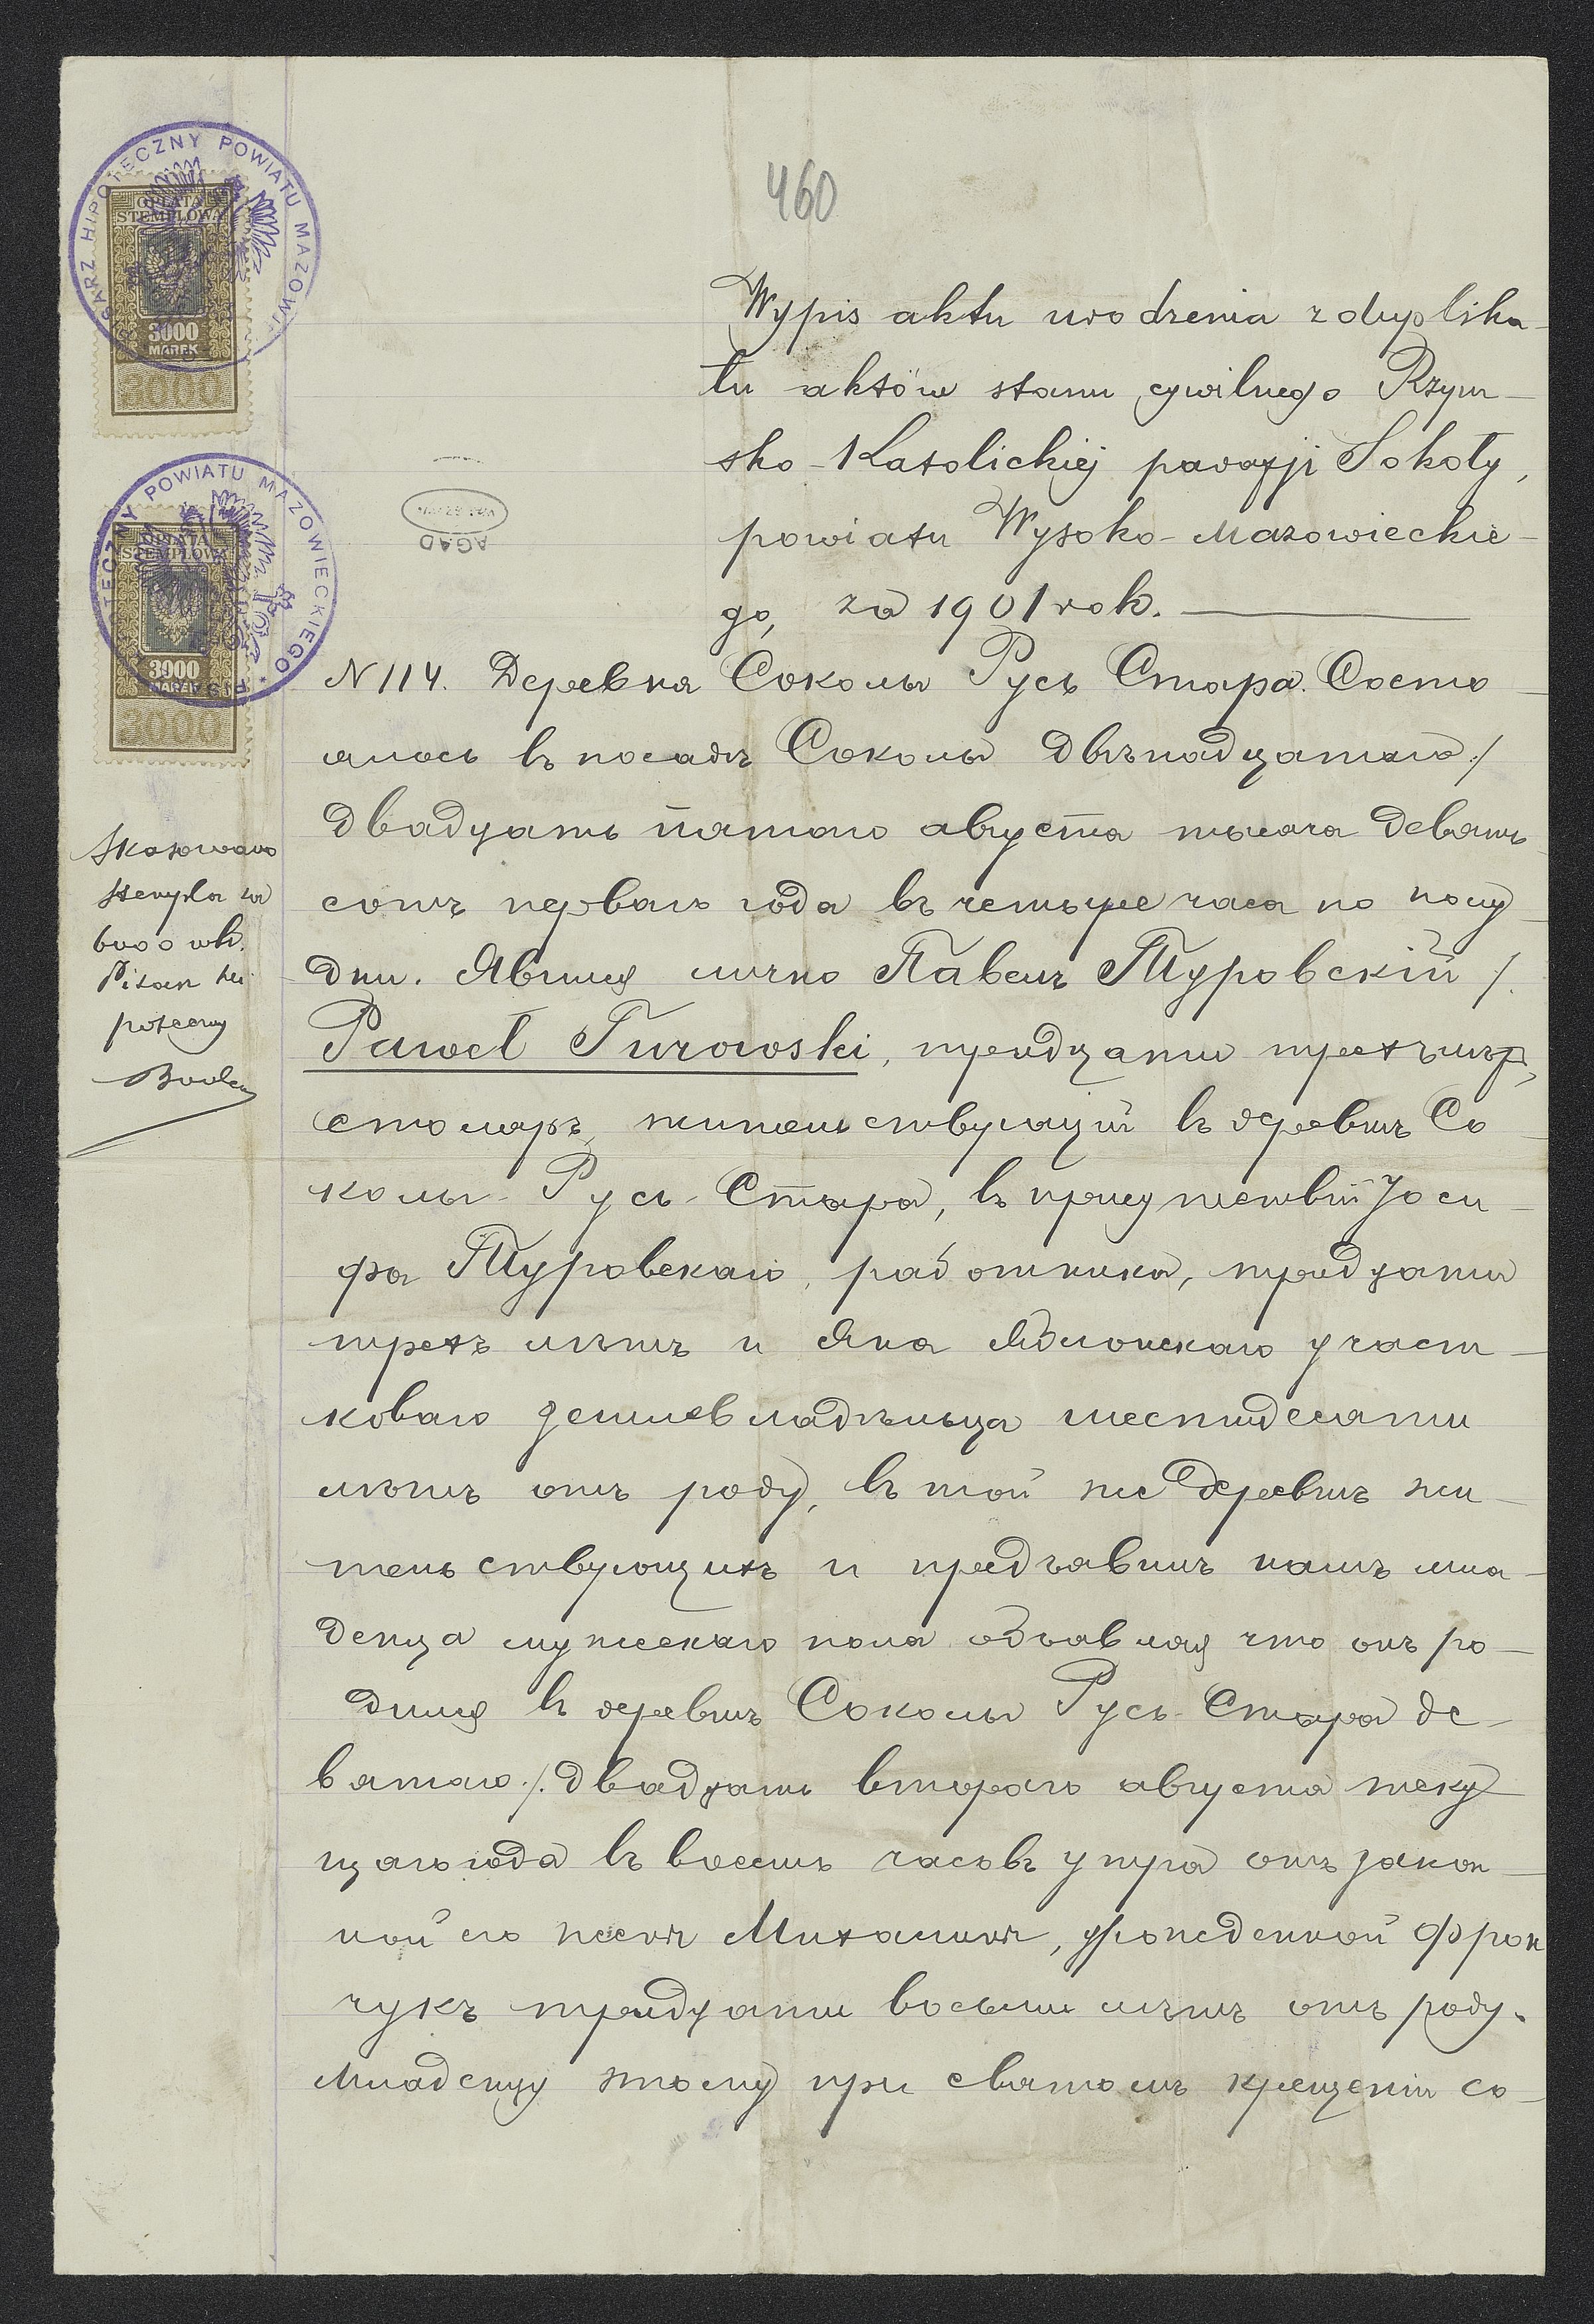 460
Wypis aktu urodzenia z duplika-
tu aktów stanu cywilnego Rzym-
sko-Katolickiej parafji Sokoły,
powiatu Wysoko-Mazowieckie-
go, za 1901 rok.
N 114. Деревня Соколы Русь Стара. Состо-
ялось въ посадѣ Соколы двѣнадцатаго /
двадцать пятаго августа тысяча девять-
сотъ перваго года въ четыре часа по полу-
дни. Явился лично Павелъ Туровскій /.
Paweł Turowski, тридцати трехъ лѣтъ,
столяръ, жительствующій въ деревнѣ Со-
колы-Русь-Стара, въ присутствіи Іоси-
фа Туровскаго, работника, тридцати
трехъ лѣтъ и Яна Яблонскаго участ-
коваго землевладѣльца шестидесяти
лѣтъ отъ роду, въ той же деревнѣ жи-
тельствующихъ и предъявилъ намъ мла-
денца мужескаго пола объявляя что онъ ро-
дился въ деревнѣ Соколы Русь-Стара де-
вятаго ./. двадцать втораго августа теку-
щаго года въ восемь часовъ утра отъ закон-
ной его жены Михалины, урожденной Фрон
чукъ тридцати восьми лѣтъ отъ роду.
Младенцу этому при святомъ крещеніи со-
OPŁATA
STEMPLOWA
3000
MAREK
3000
SARZ HIPOTECZNY POWIATU MAZOWI
OPŁATA
STEMPLOWA
3000
MAREK
3000
TECZNY POWIATU MAZOWIECKIEGO * PISA
AGAD
Skasowano
stempla za
6000 mk.
Pisarz hi
poteczny